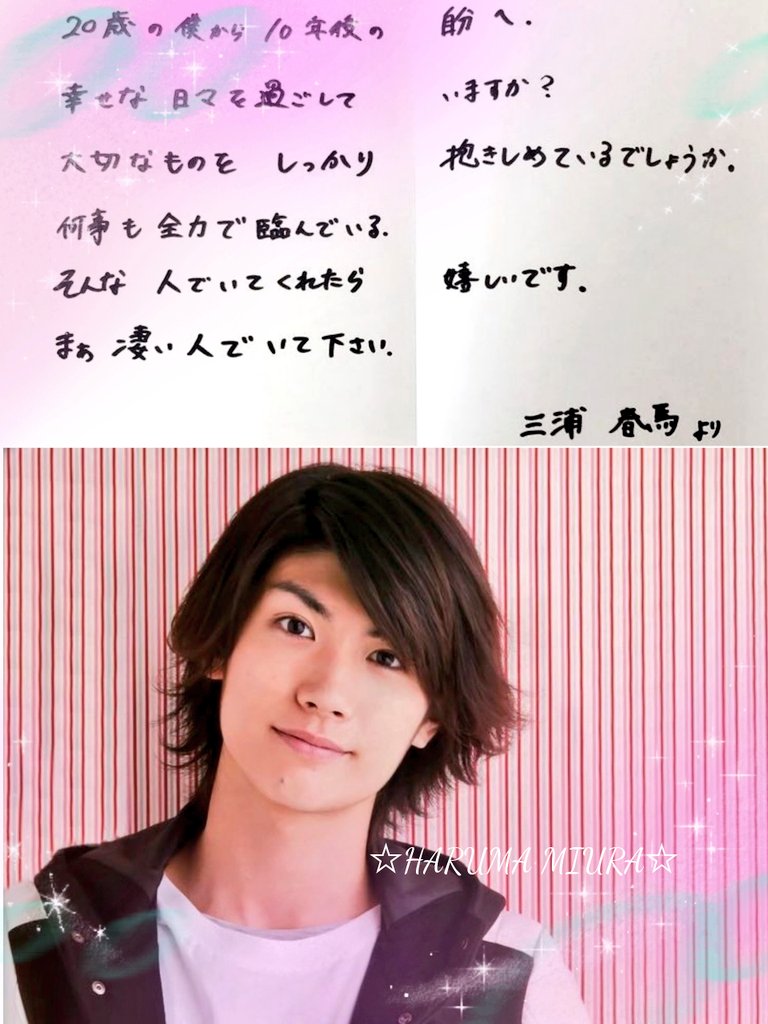 20歳の僕から10年後の自分へ.
幸せな日々を過ごしていますか?
大切なものをしっかり抱きしめているでしょうか。
何事も全力で臨んでいる.
そんな人でいてくれたら嬉しいです。
まぁ凄い人でいて下さい.
三浦春馬より
☆HARUMA MIURA☆